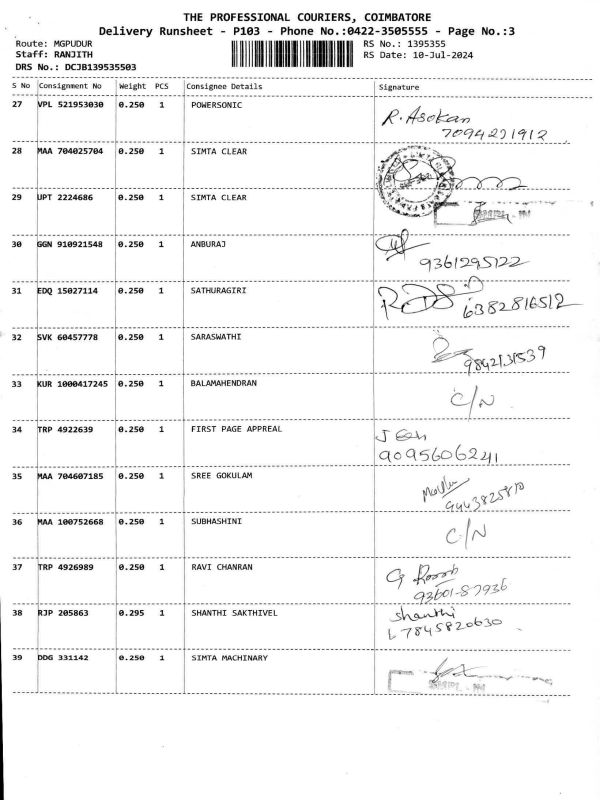 THE PROFESSIONAL COURIERS, COIMBATORE
Delivery Runsheet - P103 - Phone No.:0422-3505555 - Page No.:3
Route: MGPUDUR
RS No.: 1395355
Staff: RANJITH
RS Date: 10-Jul-2024
DRS No.: DCJB139535503
S No Consignment No Weight PCS Consignee Details Signature
27 VPL 521953030 0.250 1 POWERSONIC
R. Asokan
7094291912
28 MAA 704025704 0.250 1 SIMTA CLEAR
29 UPT 2224686 0.250 1 SIMTA CLEAR
30 GGN 910921548 0.250 1 ANBURAJ
9361295122
31 EDQ 15027114 0.250 1 SATHURAGIRI
6382816512
32 SVK 60457778 0.250 1 SARASWATHI
9842131539
33 KUR 1000417245 0.250 1 BALAMAHENDRAN
C/N
34 TRP 4922639 0.250 1 FIRST PAGE APPREAL
9095606241
35 MAA 704607185 0.250 1 SREE GOKULAM
36 MAA 100752668 0.250 1 SUBHASHINI
C/N
37 TRP 4926989 0.250 1 RAVI CHANRAN
93601-87936
38 RJP 205863 0.295 1 SHANTHI SAKTHIVEL
Shanthi
39 DDG 331142 0.250 1 SIMTA MACHINARY